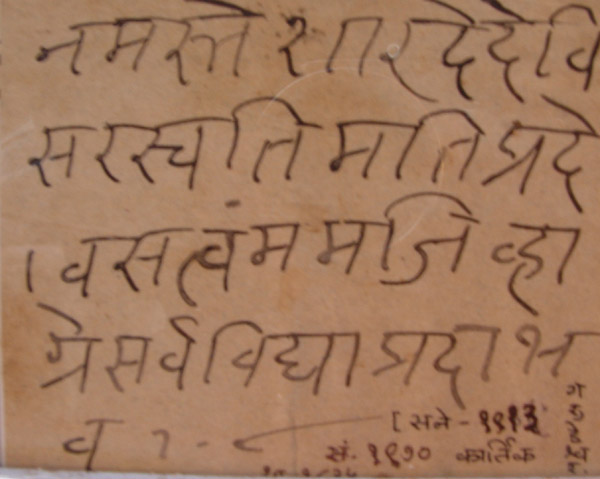 नमस्ते शारदेदेवि
सरस्वति मतिप्रदे
। वसत्वंममजिव्हा
ग्रेसर्वविद्याप्रदाभ
व
[सने - १९१३
सं. १९७० कार्तिक